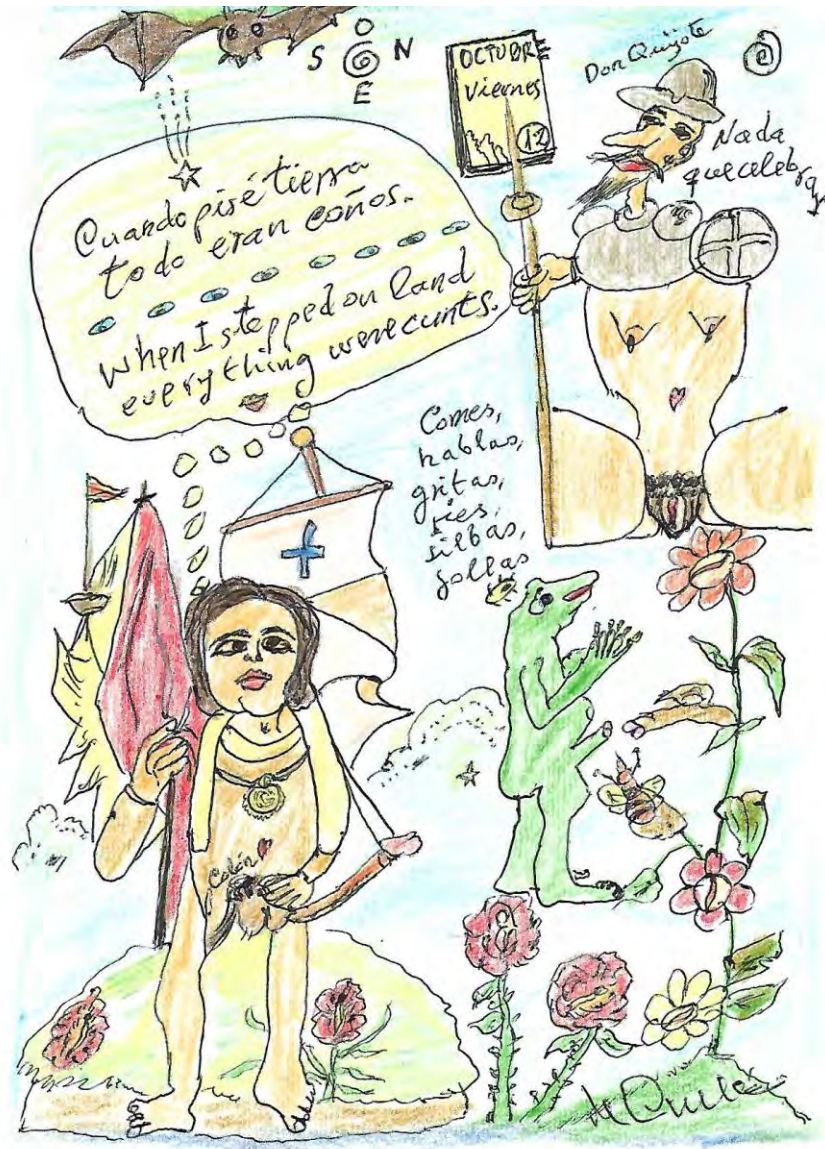 O
S N
E
OCTUBRE
Viernes
12
Don Quijote
Nada
que celebrar
Cuando pisé tierra
todo eran coños.
When I stepped on land
everything were cunts.
Comes,
hablas,
gritas,
ries,
silbas,
follas
G
Colón